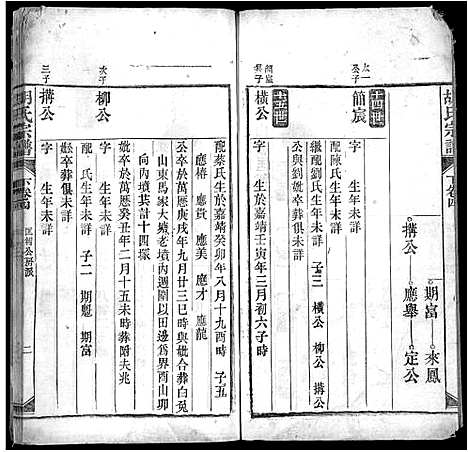 胡氏宗譜
下卷四
期富 來鳳
搆公 應舉 定公
十四世
太一公子
簡宸
字 生年未詳
配陳氏生年未詳
繼配劉氏生年未詳 子三 橫公 柳公 搆公
公與劉妣卒葬俱未詳
十五世
簡宸公長子
橫公
字 生於嘉靖壬寅年三月初六子時
配蔡氏生於嘉靖癸卯年八月十九酉時 子五
應椿 應貴 應美 應才 應龍
公卒於萬歷庚戌年九月廿三巳時與妣合葬白兎
山東馬家大墪老墳內週圍以田邊為界酉山卯
向內墳共計十四塚
妣卒於萬歷癸丑年二月十五未時葬附夫兆
次子
柳公
字 生年未詳
配 氏生年未詳 子二 期魁 期富
妣卒葬俱未詳
三子
搆公
字 生年未詳
胡氏宗譜
下卷四
公房派
二